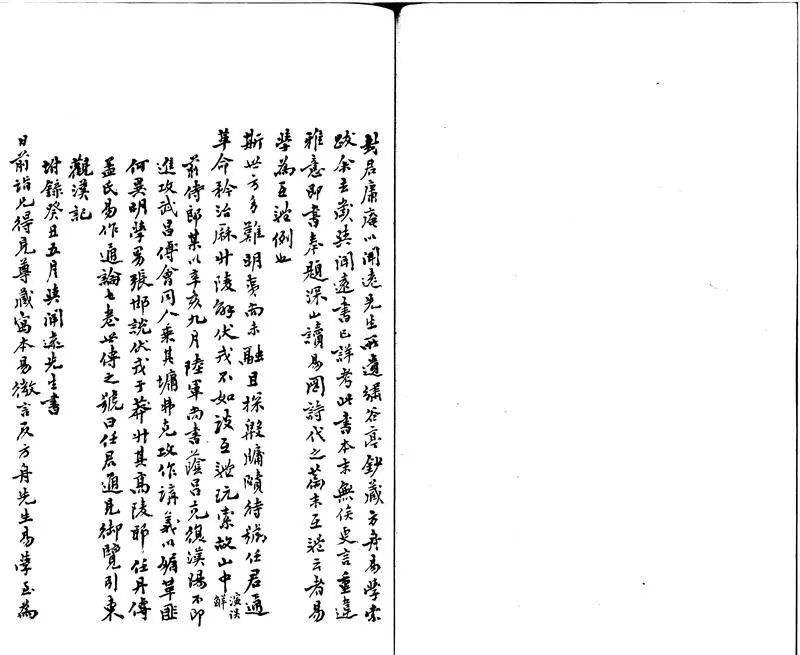 封君庸庵以闻遠先生所遺繡谷亭鈔藏方舟易學索
跋余去歲與闻遠書已詳考此書本末無俟更言重違
雅意即書奉題深山讀易圖詩代之篇末互體云者易
學為互體例也
斯世方多難明夷尚未融且探殷牖賾待號任君通
革命矜治厤壯陵餘伏戎不如談互體玩索故山中
演誤解
前侍郎某以辛亥九月陸軍尚書蔭呂克復漢陽不即
進攻武昌傅會同人乘其墉弗克攻作講義以媚革匪
何異明學男張邯説伏戎于莽升其高陵耶任丹傳
孟氏易作通論七卷世傳之號曰任君通見御覽引東
觀漢記
坿錄癸丑五月與闻遠先生書
日前詣兄得見尊藏寫本易徵言及方舟先生易學至為